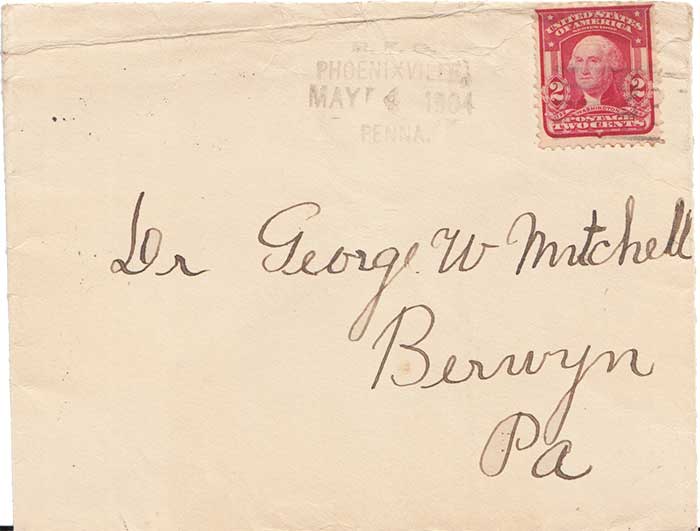 R.F.D.
PHOENIXVILLE,
MAY 4 1904
PENNA.
UNITED STATES
OF AMERICA
2 WASHINGTON 2
POSTAGE
TWO CENTS
Dr George W Mitchell
Berwyn
Pa